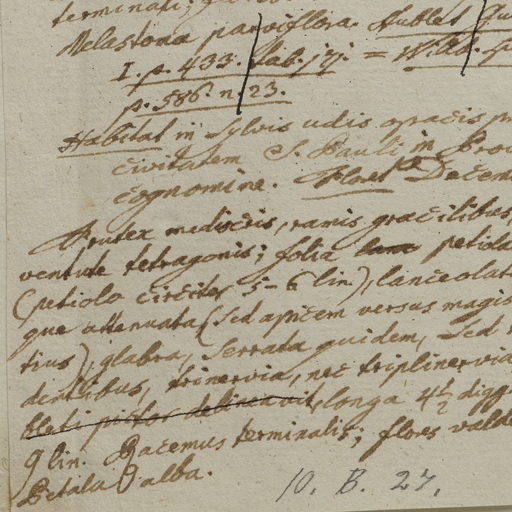 terminati;
Melastoma parviflora. Aublet Gu
I. p. 433. tab. 171. = Willd. sp
p. 586. n. 23.
Habitat in sylvis udis opacis pr
civitatem S. Pauli in Prov
cognomine. Floret Decem
Frutex mediocris, ramis gracilibus,
ventute tetragonis; folia petiola
(petiolo circiter 5-6 lin), lanceolat
que attenuata (sed apicem versus magis
tius), glabra, serrata quidem, sed
dentibus, trinervia, nec triplinervia
bleti pictor delineavit, longa 4½ digg
9 lin. Racemus terminalis; flores valde
Petala 5 alba.
10. B. 27.